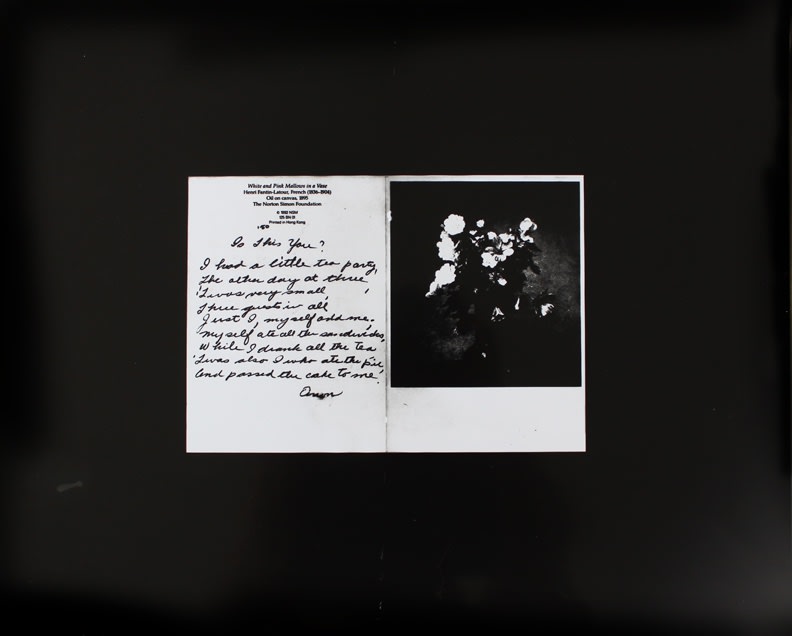 White and Pink Mallows in a Vase
Henri Fantin-Latour, French (1836–1904)
Oil on canvas, 1895
The Norton Simon Foundation
© 1982 NSM
Printed in Hong Kong
.50
Is This You?
I had a little tea party,
The other day at three
'Twas very small,
Three guests in all,
Just I, myself and me.
Myself ate all the sandwiches,
While I drank all the tea
'Twas also I who ate the pie,
And passed the cake to me.
Anon